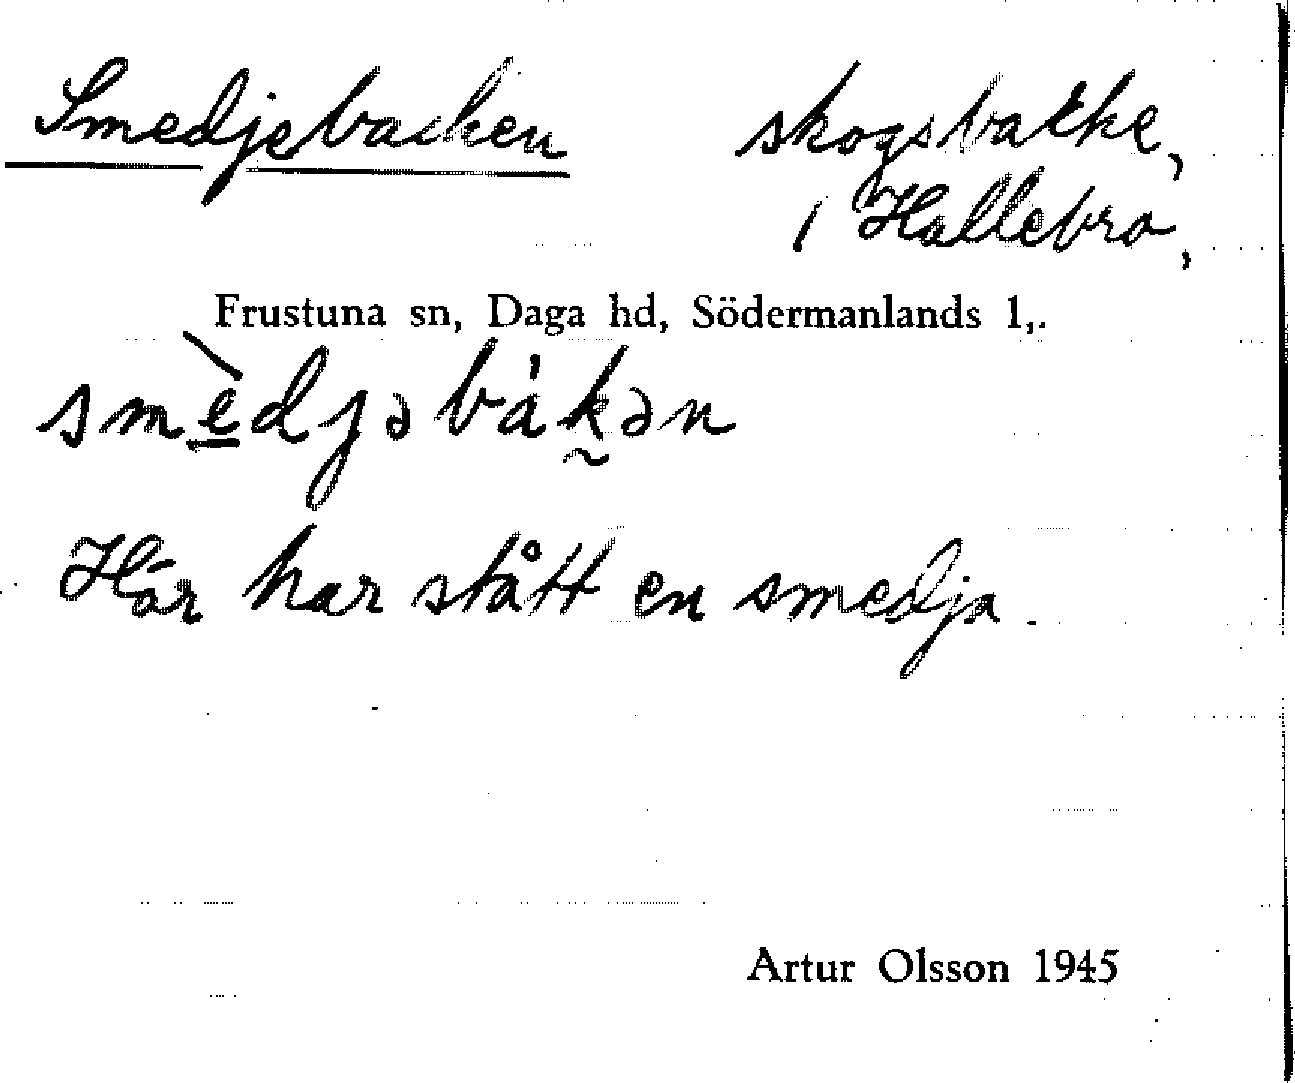 Smedjebacken skogsbacke,
i Hallebro,
Frustuna sn, Daga hd, Södermanlands l,.
smèdjəbák̰ən
Här har stått en smedja.
Artur Olsson 1945